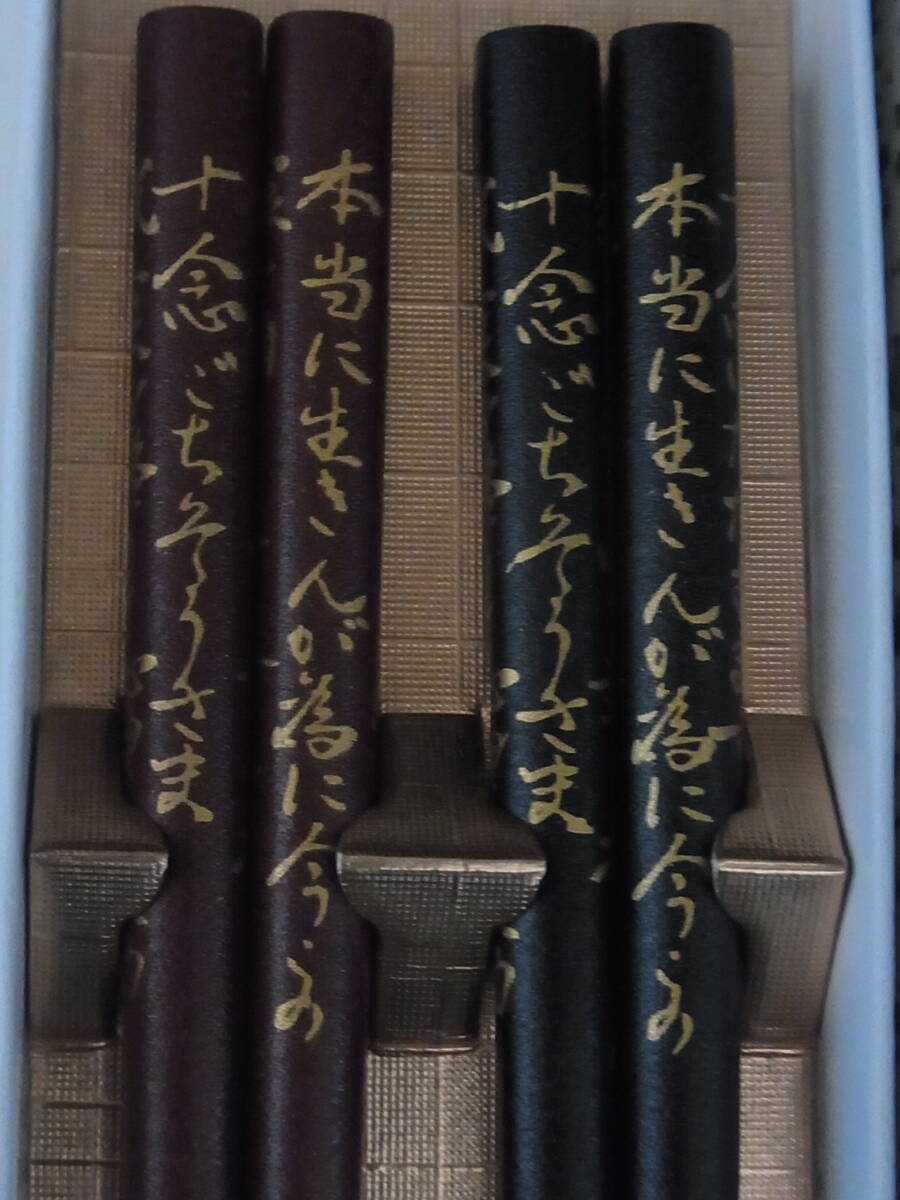 本当に生きんが為に今この
十念ごちそうさま
本当に生きんが為に今この
十念ごちそうさま